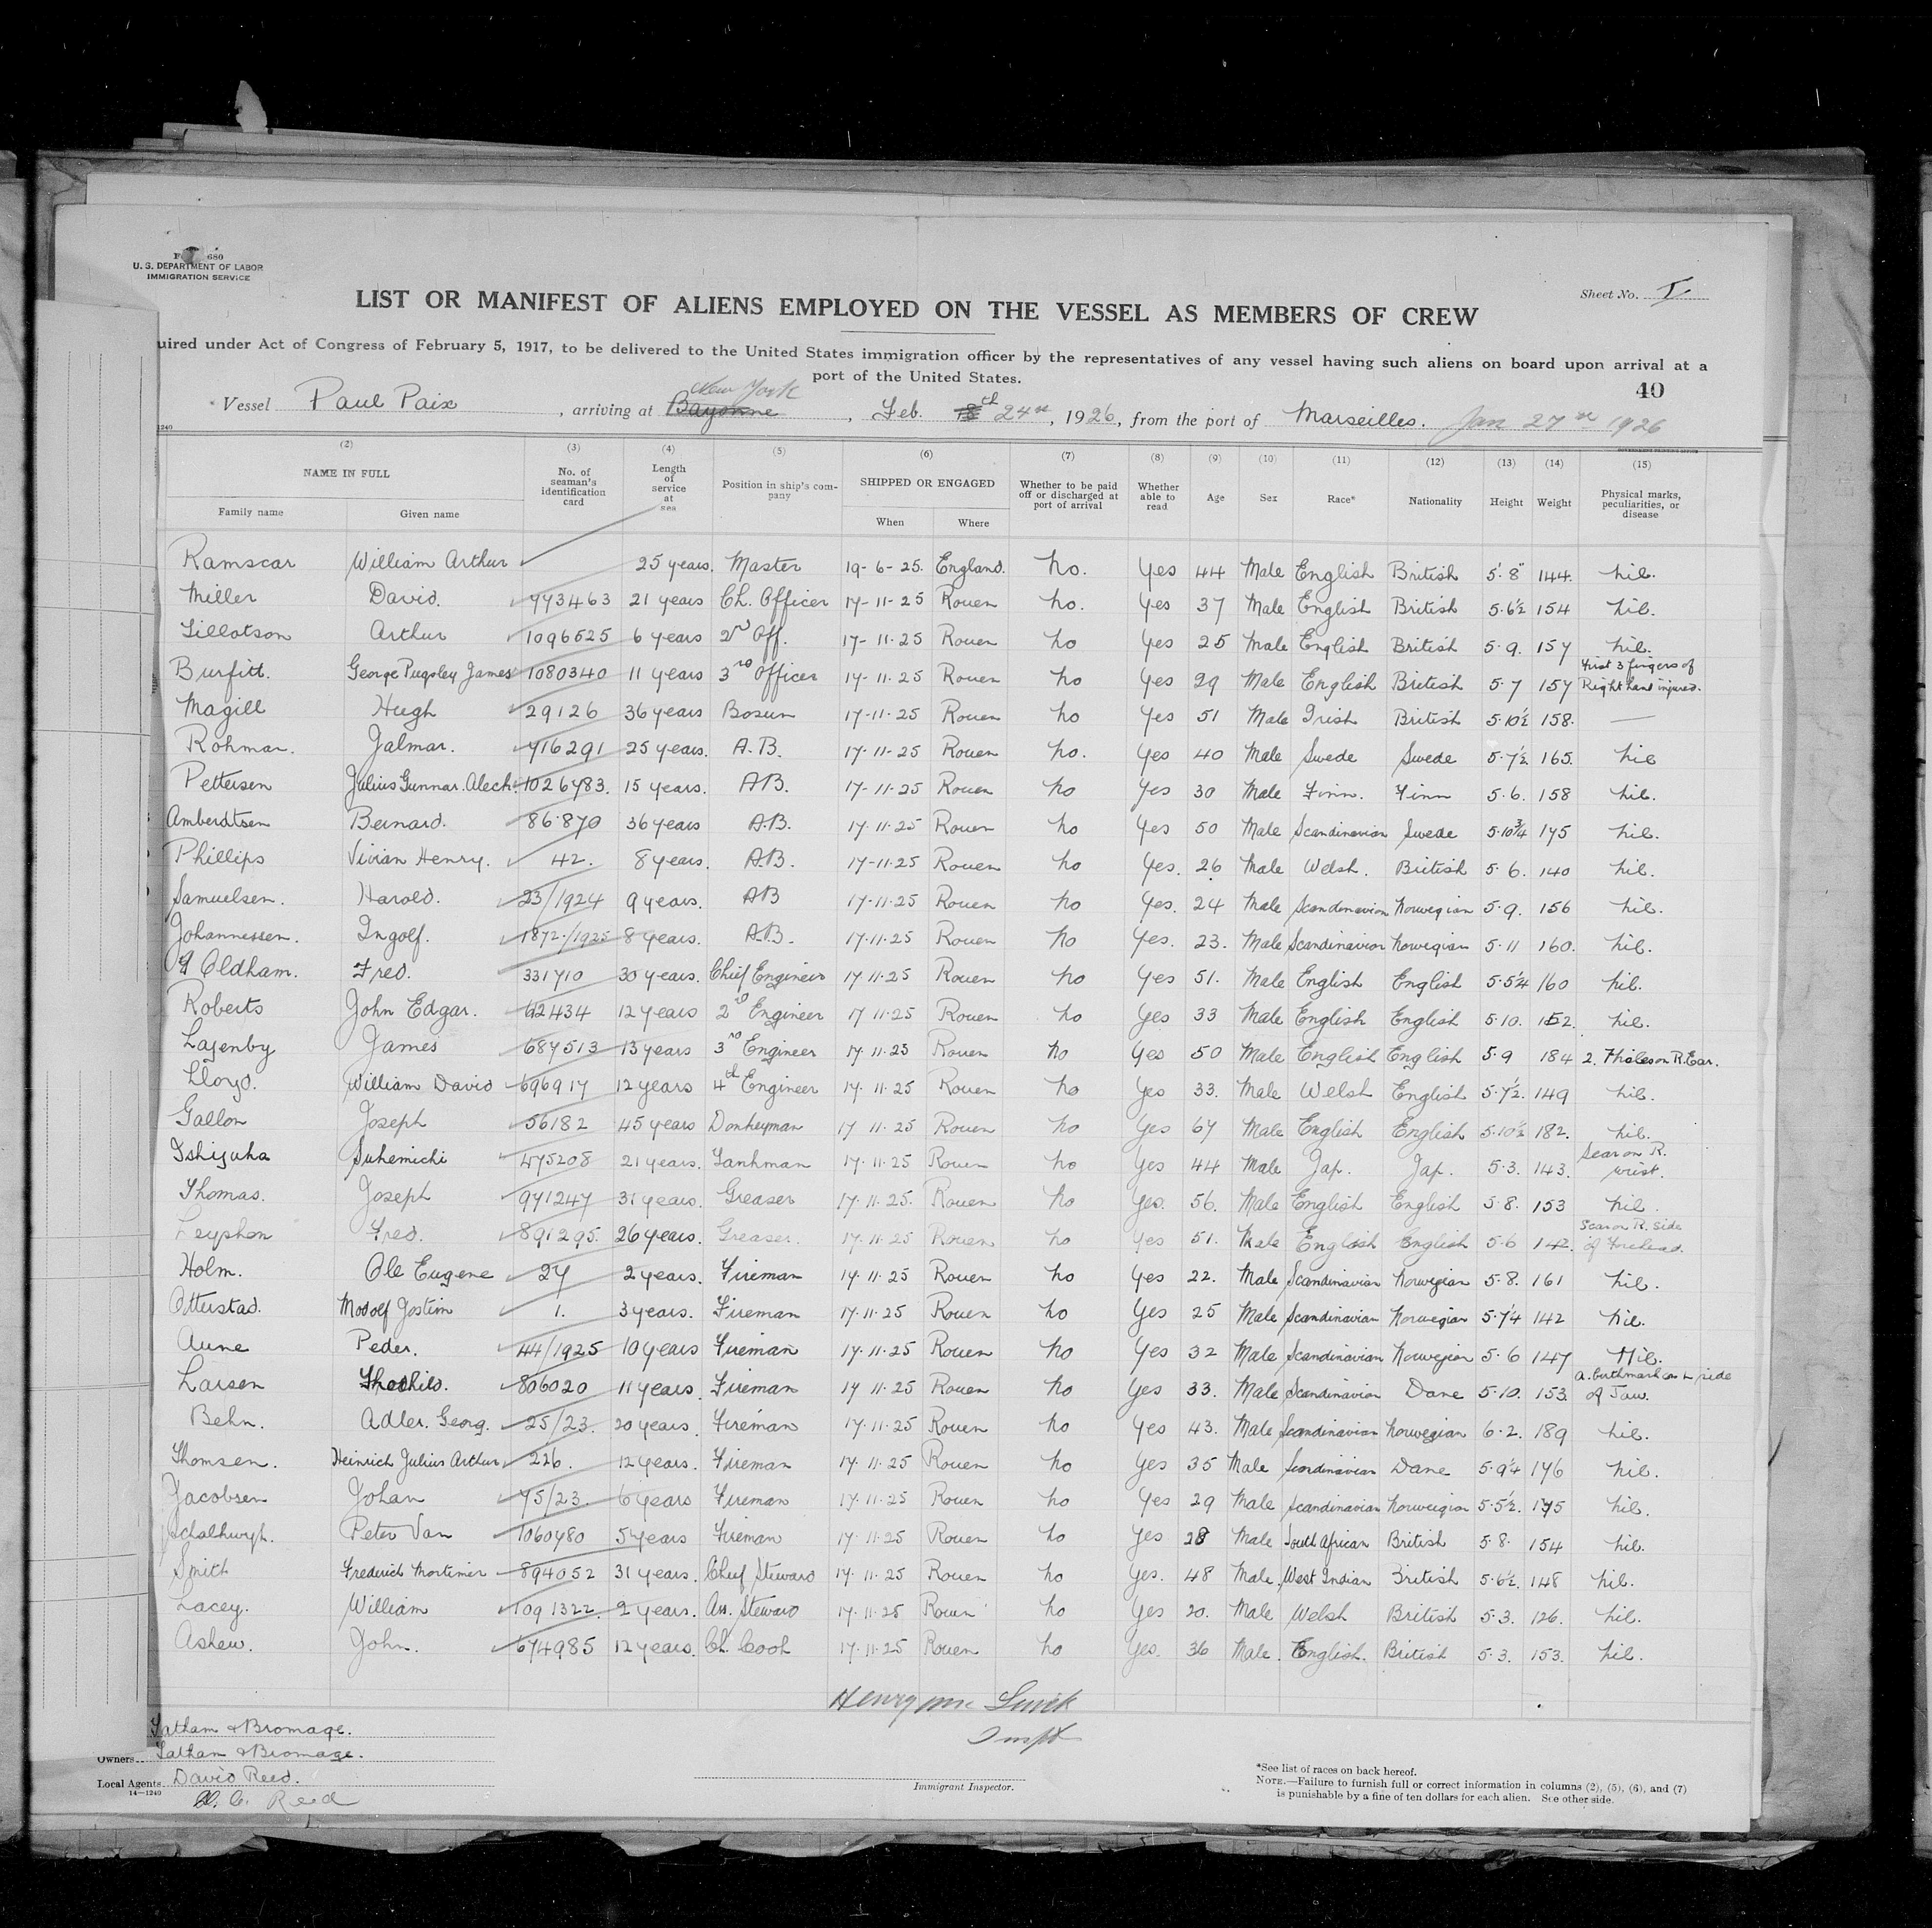 680
U. S. DEPARTMENT OF LABOR
IMMIGRATION SERVICE
Sheet No. I
LIST OR MANIFEST OF ALIENS EMPLOYED ON THE VESSEL AS MEMBERS OF CREW
uired under Act of Congress of February 5, 1917, to be delivered to the United States immigration officer by the representatives of any vessel having such aliens on board upon arrival at a
port of the United States.
40
New York
Vessel Paul Paix, arriving at Bayonne, Feb. 24th, 1926, from the port of Marseilles. Jan 27th 1926
1240
(2) (3) (4) (5) (6) (7) (8) (9) (10) (11) (12) (13) (14) (15)
NAME IN FULL No. of seaman's identification card Length of service at sea Position in ship's company SHIPPED OR ENGAGED Whether to be paid off or discharged at port of arrival Whether able to read Age Sex Race* Nationality Height Weight Physical marks, peculiarities, or disease
Family name Given name When Where
Ramscar William Arthur 25 years. Master 19-6-25. England. No. Yes 44 Male English British 5'8" 144. Nil.
Miller David. 773463 21 years Ch. Officer 17-11-25 Rouen No. Yes 37 Male English British 5.6½ 154 Nil.
Tillotson Arthur 1096525 6 years 2nd Off. 17-11-25 Rouen No Yes 25 Male English British 5.9. 157 Nil.
Burfitt. George Pugsley James 1080340 11 years 3rd Officer 17-11-25 Rouen No Yes 29 Male English British 5.7 157 First 3 fingers of Right hand injured.
Magill Hugh 29126 36 years Bosun 17-11-25 Rouen No Yes 51 Male Irish British 5.10½ 158. —
Rohmar. Jalmar. 716291 25 years. A.B. 17-11-25 Rouen No. Yes 40 Male Swede Swede 5.7½ 165. Nil
Pettersen Julius Gunnar. Alech. 1026783. 15 years. AB. 17-11-25 Rouen No Yes 30 Male Finn. Finn 5.6. 158 Nil.
Amberdtsen Bernard. 86.870 36 years A.B. 17.11.25 Rouen No Yes 50 Male Scandinavian Swede 5.10¾ 175 Nil.
Phillips Vivian Henry. 42. 8 years. A.B. 17-11.25 Rouen No Yes. 26 Male Welsh. British 5.6. 140 Nil.
Samuelsen. Harold. 23/1924 9 years. AB 17-11.25 Rouen No Yes. 24 Male Scandinavian Norwegian 5.9. 156 Nil.
Johannessen. Ingolf. 1872/1925 8 years. A.B. 17.11.25 Rouen No Yes. 23. Male Scandinavian Norwegian 5.11 160. Nil.
Oldham. Fred. 331710 30 years. Chief Engineer 17.11.25 Rouen No Yes 51. Male English English 5.5¼ 160 Nil.
Roberts John Edgar. 62434 12 years 2nd Engineer 17 11.25 Rouen No Yes 33 Male English English 5.10. 152. Nil.
Lazenby James 687513 13 years 3rd Engineer 17.11.25 Rouen No Yes 50 Male English English 5.9 184 2. Moles on R. Ear.
Lloyd. William David 696917 12 years 4th Engineer 17.11.25 Rouen No Yes 33. Male Welsh English 5.7½. 149 Nil.
Gallon Joseph 56182 45 years Donkeyman 17 11.25 Rouen No Yes 67 Male English English 5.10½ 182. Nil.
Ishizuka Sukemichi 475208 21 years. Tankman 17.11.25 Rouen No Yes 44 Male Jap. Jap. 5.3. 143. Scar on R. wrist.
Thomas. Joseph 971247 31 years. Greaser 17.11.25. Rouen No Yes. 56. Male English English 5.8. 153 Nil.
Leyshon Fred. 891295. 26 years. Greaser. 17.11.25 Rouen No Yes 51. Male English English 5.6 142. Scar on R. side of Forehead.
Holm. Ole Eugene 27 2 years. Fireman 17.11.25 Rouen No Yes 22. Male Scandinavian Norwegian 5.8. 161 Nil.
Otterstad. Modolf Jostein 1. 3 years. Fireman 17.11.25 Rouen No Yes 25 Male Scandinavian Norwegian 5.7¼ 142 Nil.
Aune Peder. 44/1925 10 years Fireman 17.11.25 Rouen No Yes 32 Male Scandinavian Norwegian 5.6 147 Nil.
Larsen 806020 11 years. Fireman 17 11.25 Rouen No Yes 33. Male Scandinavian Dane 5.10. 153. a. birthmark on L side of Jaw.
Behn. Adler. Georg. 25/23. 20 years. Fireman 17.11.25 Rouen No Yes 43. Male Scandinavian Norwegian 6.2. 189 Nil.
Thomsen. Heinrich Julius Arthur 226. 12 years. Fireman 17.11.25 Rouen No Yes 35 Male Scandinavian Dane 5.9¼ 176 Nil.
Jacobsen Johan 75/23. 6 years Fireman 17.11.25 Rouen No Yes 29 Male Scandinavian Norweigian 5.5½. 175 Nil.
Schalkwyk. Peter Van 1060780 5 years Fireman 17.11.25 Rouen No Yes 28 Male South African British 5.8. 154 Nil.
Smith Frederick Mortimer 894052 31 years. Chief Steward 17.11.25 Rouen No Yes. 48 Male. West Indian British 5.6½. 148 Nil.
Lacey. William 1091322. 2 years. Ass. Steward 17.11.25 Rouen No Yes 20. Male Welsh British 5.3. 126. Nil.
Askew. John. 674985 12 years. Ch. Cook 17.11.25 Rouen No Yes. 36 Male. English. British 5.3. 153. Nil.
Henry Mc
Inspt
Latham & Bromage.
Owners Latham & Bromage.
Local Agents David Reed.
14—1240
Reed
Immigrant Inspector.
*See list of races on back hereof.
NOTE.—Failure to furnish full or correct information in columns (2), (5), (6), and (7)
is punishable by a fine of ten dollars for each alien. See other side.